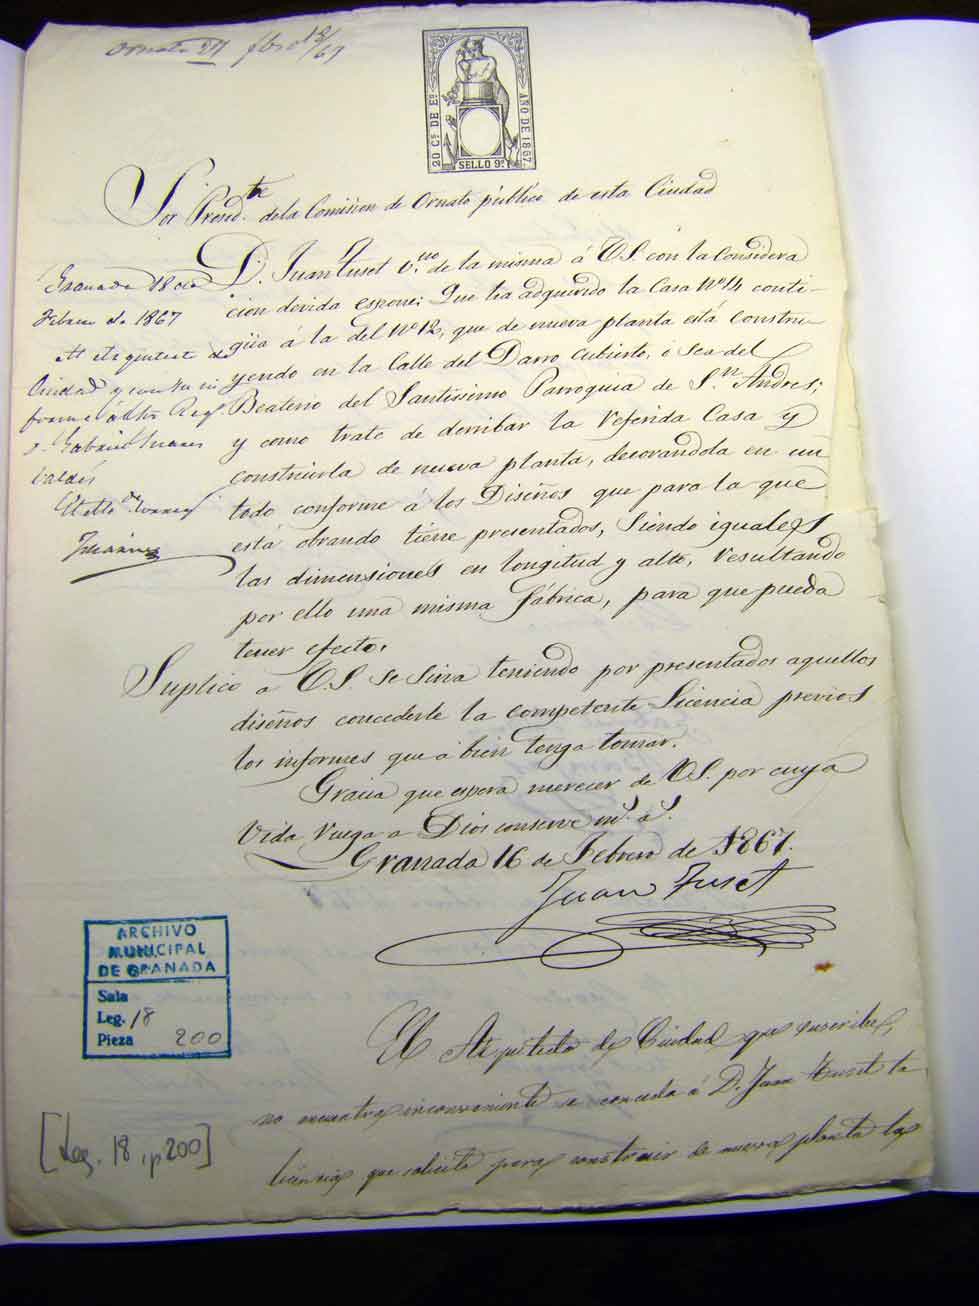 Ornato 27 fbro 18/67
20 Cs DE Eo
AÑO DE 1867.
SELLO 9o
Sor Presidte de la Comision de Ornato público de esta Ciudad
D. Juan Fuset v.no de la misma á V.S. con la considera
cion devida espone: Que ha adquirido la Casa No 14 conti-
güa á la del No 12, que de nueva planta está constru
yendo en la Calle del Darro Cubierto, ó sea del
Beaterio del Santissimo Parroquia de S.n Andres;
y como trate de derribar la referida Casa y
construirla de nueva planta, decorandola en un
todo conforme a los Diseños que para la que
está obrando tiene presentados, siendo iguales
las dimensiones en longitud y alto, resultando
por ello una misma fábrica, para que pueda
tener efecto,
Suplico a V.S. se sirva teniendo por presentados aquellos
diseños concederle la competente Licencia previos
los informes que á bien tenga tomar.
Gracia que espera merecer de V.S. por cuya
vida ruega a Dios conserve ms. as.
Granada 16 de Febrero de 1867.
Juan Fuset
Granada 18 de
Febrero de 1867
Al Arquitecto de
Ciudad y con su in
forme
Gabriel
Valdés
ARCHIVO
MUNICIPAL
DE GRANADA
Sala
Leg. 18
Pieza 200
[Leg. 18, p 200]
El Arquitecto de Ciudad que suscribe,
no encuentra inconveniente se conceda á D. Juan Fuset la
licencia que solicita para construir de nueva planta la